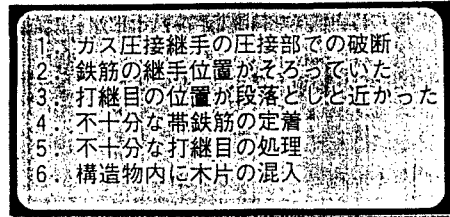 1. ガス圧接継手の圧接部での破断
2. 鉄筋の継手位置がそろっていた
3. 打継目の位置が段落としと近かった
4. 不十分な帯鉄筋の定着
5. 不十分な打継目の処理
6. 構造物内に木片の混入